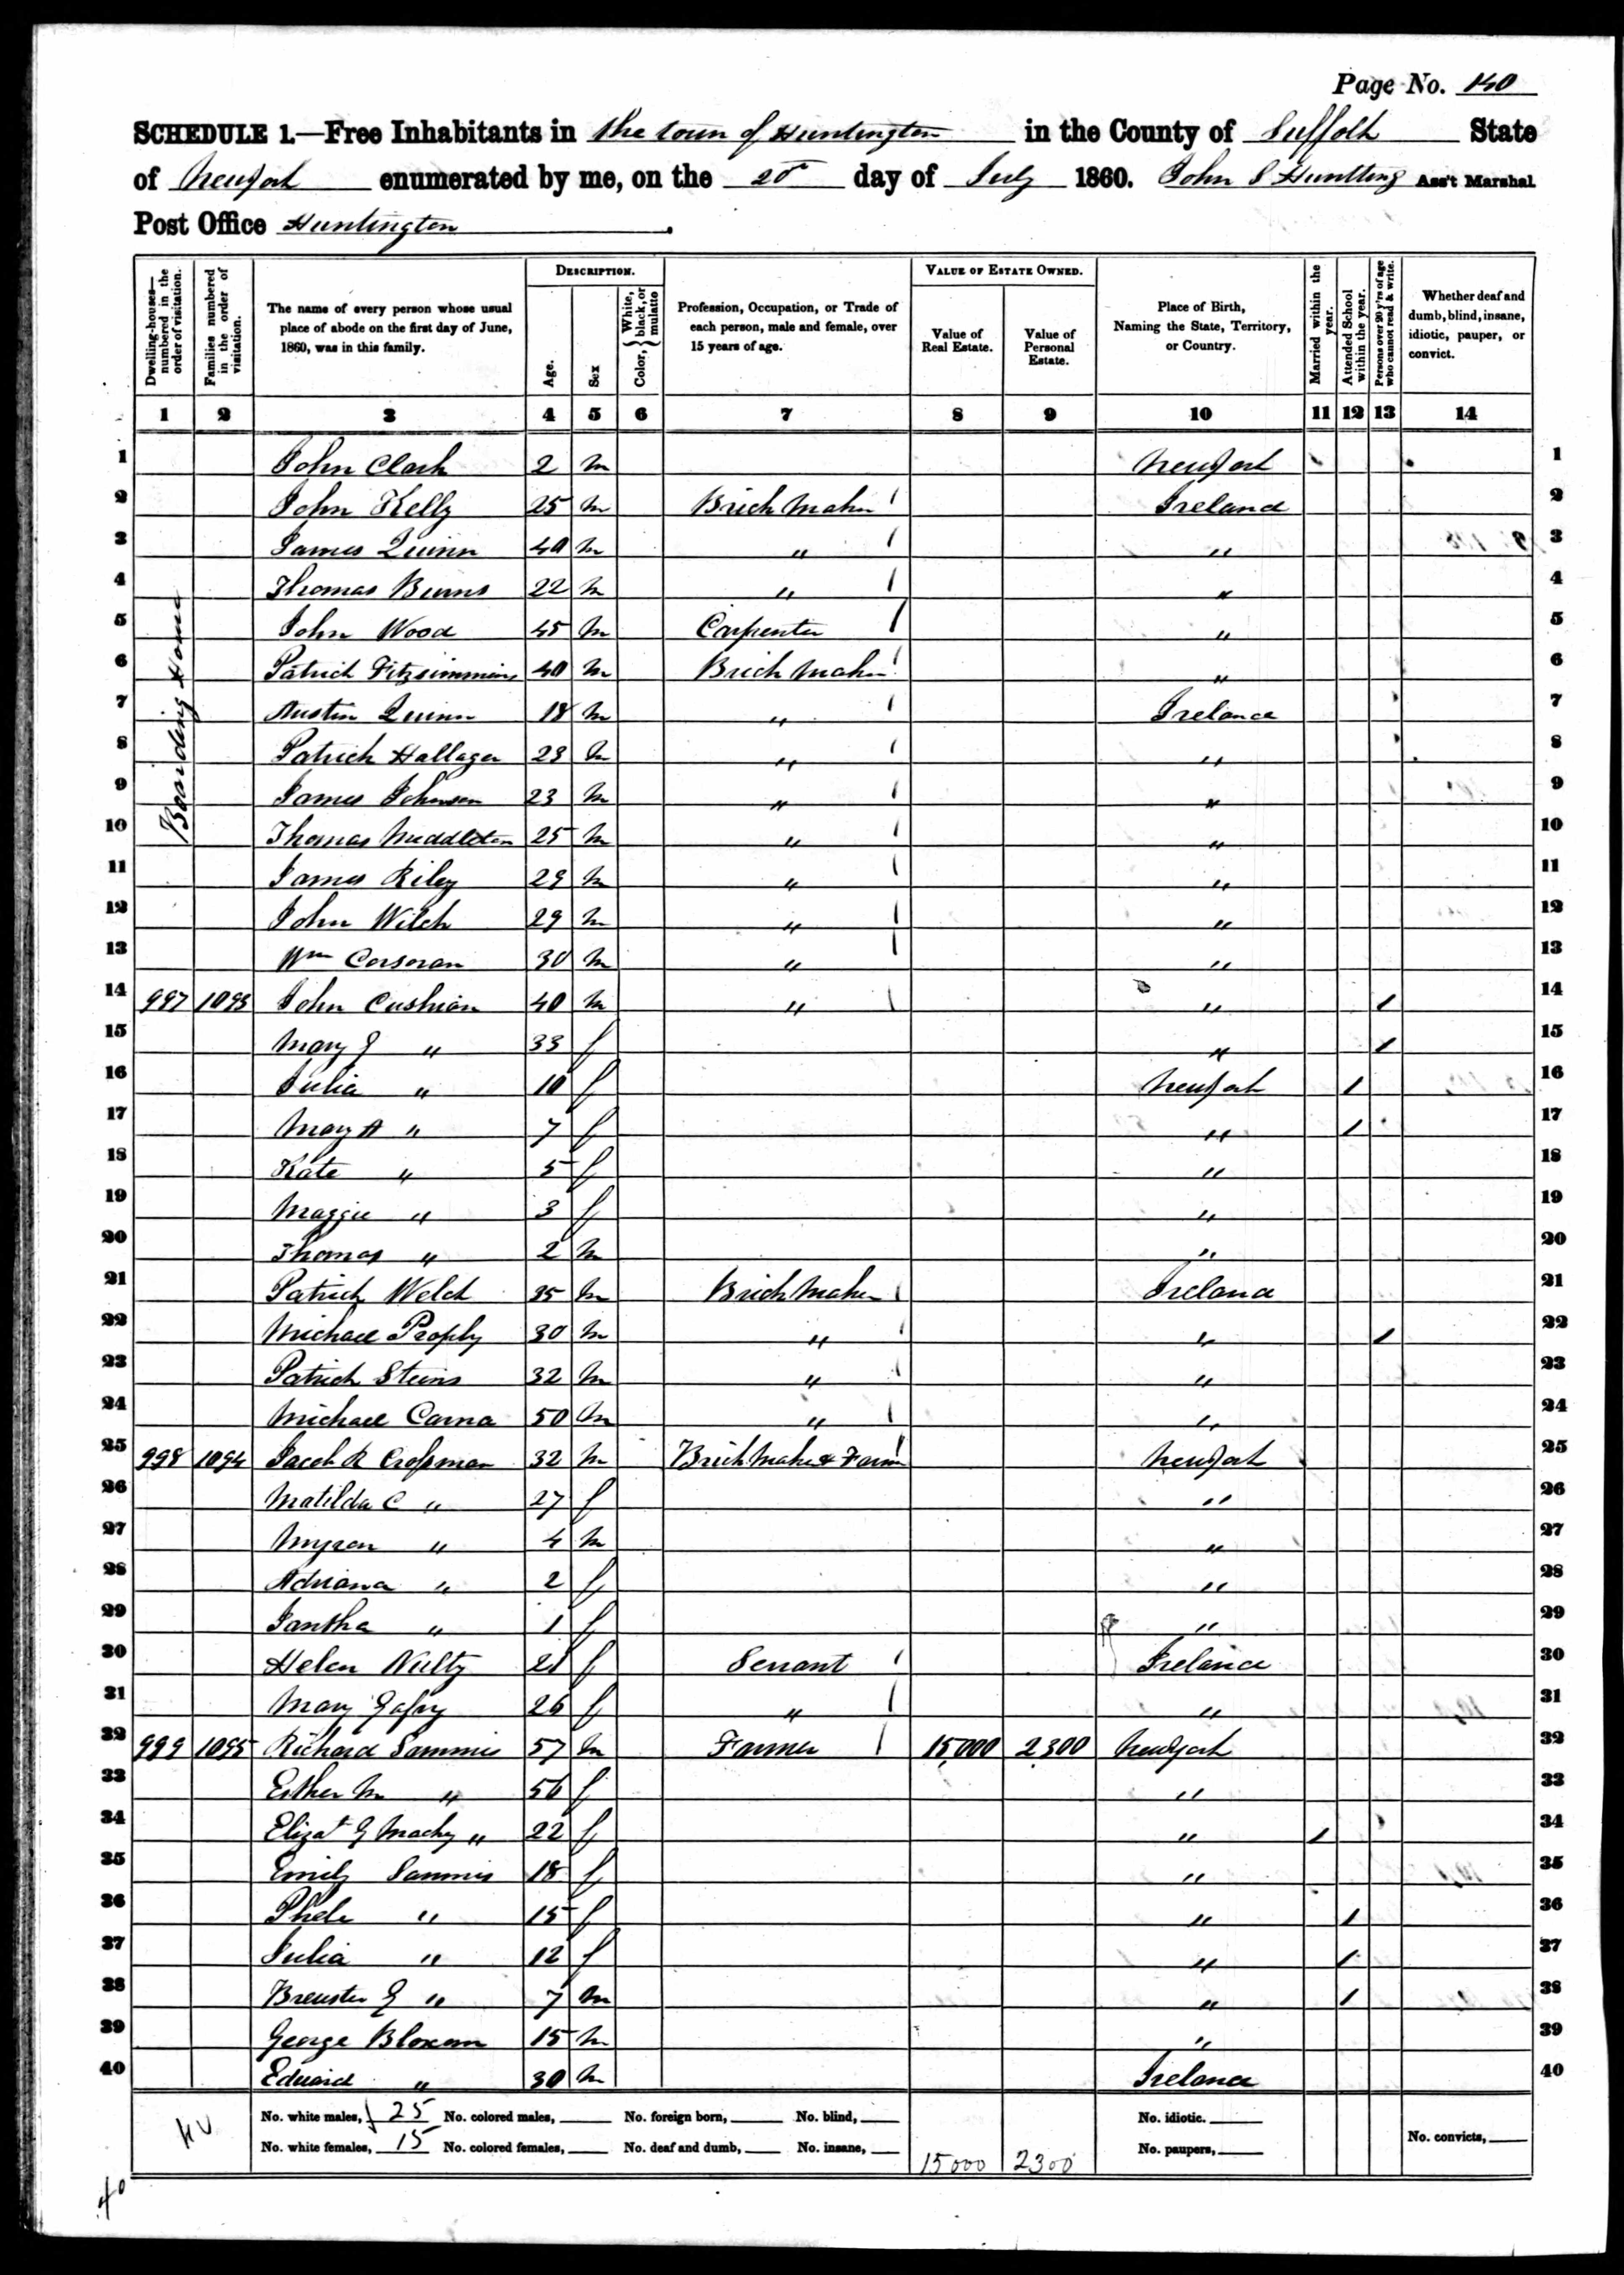 Page No. 140
SCHEDULE 1.—Free Inhabitants in the town of Huntington in the County of Suffolk State
of New York enumerated by me, on the 20 day of July 1860. John S Huntting Ass't Marshal
Post Office Huntington.
Dwelling-houses—numbered in the order of visitation. Families numbered in the order of visitation. The name of every person whose usual place of abode on the first day of June, 1860, was in this family. DESCRIPTION. Age. Sex Color, White, black, or mulatto Profession, Occupation, or Trade of each person, male and female, over 15 years of age. VALUE OF ESTATE OWNED. Value of Real Estate. Value of Personal Estate. Place of Birth, Naming the State, Territory, or Country. Married within the year. Attended School within the year. Persons over 20 y'rs of age who cannot read & write. Whether deaf and dumb, blind, insane, idiotic, pauper, or convict.
1 2 3 4 5 6 7 8 9 10 11 12 13 14
Boarding House
1 John Clark 2 m New York 1
2 John Kelly 25 m Brick Maker / Ireland 2
3 James Quinn 40 m " / " 3
4 Thomas Burns 22 m " / " 4
5 John Wood 45 m Carpenter / " 5
6 Patrick Fitzsimmins 40 m Brick Maker / " 6
7 Austin Quinn 18 m " / Ireland 7
8 Patrick Hallager 23 m " / " 8
9 James Johnson 23 m " / " 9
10 Thomas Middleton 25 m " / " 10
11 James Riley 29 m " / " 11
12 John Wilch 29 m " / " 12
13 Wm Corsoran 30 m " / " 13
14 997 1093 John Cushion 40 m " / " / 14
15 Mary J " 33 f " / 15
16 Julia " 10 f New York / 16
17 Mary A " 7 f " / 17
18 Kate " 5 f " 18
19 Maggie " 3 f " 19
20 Thomas " 2 m " 20
21 Patrick Welch 35 m Brick Maker / Ireland 21
22 Michael Prophy 30 m " / " / 22
23 Patrick Steins 32 m " / " 23
24 Michael Carna 50 m " / " 24
25 998 1094 Jacob R Crossman 32 m Brick Maker & Farm / New York 25
26 Matilda C " 27 f " 26
27 Myron " 4 m " 27
28 Adriana " 2 f " 28
29 Iantha " 1 f " 29
30 Helen Nultz 21 f Servant / Ireland 30
31 Mary Gafny 26 f " / " 31
32 999 1095 Richard Sammis 57 m Farmer / 15,000 2,300 New York 32
33 Esther M " 56 f " 33
34 Elizat G Macky " 22 f " / 34
35 Emily Sammis 18 f " 35
36 Phebe " 15 f " / 36
37 Julia " 12 f " / 37
38 Brewster G " 7 m " / 38
39 George Bloxom 15 m " 39
40 Edward " 30 m Ireland 40
No. white males, 25 No. colored males, No. foreign born, No. blind, No. idiotic.
No. white females, 15 No. colored females, No. deaf and dumb, No. insane, 15000 2300 No. paupers, No. convicts,
40